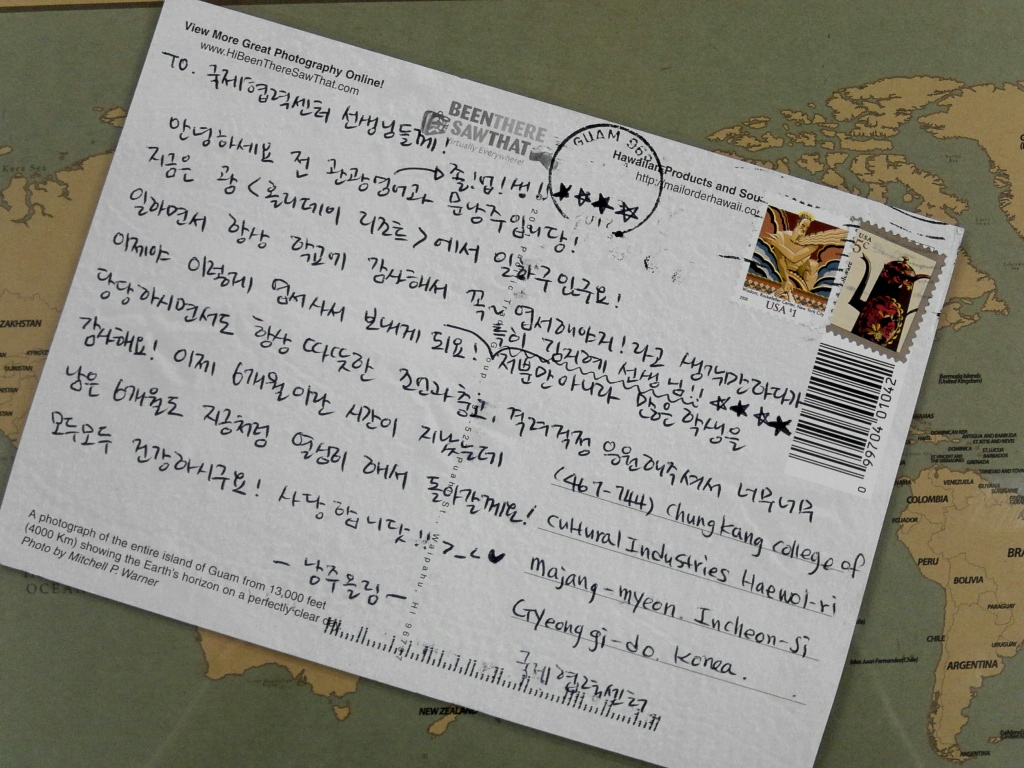 View More Great Photography Online!
www.HiBeenThereSawThat.com
BEENTHERE
SAWTHAT
Virtually Everywhere!
GUAM 969
Hawaiian Products and Sou
http://mailorderhawaii.co
USA $1
TO. 국제협력센터 선생님들께!
안녕하세요 전 관광영어과 졸!업!생!! ★★★★ 문낭주입니당!
지금은 괌 <홀리데이 리조트>에서 일하구인구요!
일하면서 항상 학교에 감사해서 꼭 엽서해야지!라고 생각만하다가
이제야 이렇게 엽서사서 보내게 되요! 특히 김지혜 선생님!! ★★★★
당당하시면서도 항상 따뜻한 조언과충고, 저뿐만아니라 많은 학생을
격려적정 응원해주셔서 너무너무
감사해요! 이제 6개월이란 시간이 지났는데
남은 6개월도 지금처럼 열심히 해서 돌아갈께요!
모두모두 건강하시구요! 사랑합니닷!!! >_< ♥
- 낭주올림 -
(467-744) Chungkang college of
cultural Industries Haewol-ri
majang-myeon. Incheon-si
Gyeonggi-do. Korea.
국제협력센터
0 99704 01042
A photograph of the entire island of Guam from 13,000 feet
(4000 Km) showing the Earth's horizon on a perfectly clear
Photo by Mitchell P. Warner
KAZAKHSTAN
NEW ZEALAND
Bermuda Islands
(United Kingdom)
COLOMBIA
VENEZUELA
ECUADOR
PERU
BRA
BOLIVIA
PARAGUAY
CHILE
URUGUAY
ARGENTINA